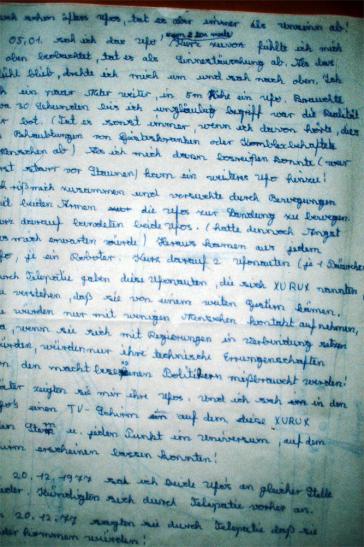 schon öfters Ufos, tat es aber immer als Unsinn ab!
zum 2 ten male
05.01. sah ich das Ufo! Kurz zuvor fühlte ich mich
oben beobachtet, tat es als Sinnestäuschung ab. Als das
blieb, drehte ich mich um und sah nach oben. Sah
ein paar Meter weiter, in 5m Höhe ein Ufo. Brauchte
30 Sekunden bis ich ungläubig begriff war die Realität
bot. (Tat es sonst immer, wenn ich davon hörte, als
von Geisteskranken oder Komplexbehaftete
Menschen ab) Als ich mich davon losreißen konnte (war
starr vor Staunen) kam ein weiteres Ufo hinzu!
riß mich zusammen und versuchte durch Bewegungen
mit beiden Armen die Ufos zur Landung zu bewegen.
Kurz darauf landeten beide Ufos. (hatte dennoch Angst
was mich erwarten würde) Heraus kamen aus jedem
Ufo, je ein Roboter. Kurz darauf 2 Ufonauten (je 1
durch Telepatie gaben diese Ufonauten, die sich XURUX nannten
zu verstehen, daß sie von einem weiten Gestirn kämen.
würden nur mit wenigen Menschen kontakt aufnehmen,
da, wenn sie sich mit Regierungen in Verbindung setzen
würden, würden nur ihre technische Errungenschaften
den macht besessenen Politikern mißbraucht werden!
Später zeigten sie mir ihre Ufos. Und ich sah in den
Ufos einen TV-Schirm auf dem diese XURUX
u. jeden Punkt im Universum, auf dem
Schirm erscheinen lassen konnten!
20.12.1977 sah ich beide Ufos an gleicher Stelle
wieder. Kündigten sich durch Telepatie vorher an.
20.12.77 sagten sie durch Telepatie daß sie
wieder kommen würden!